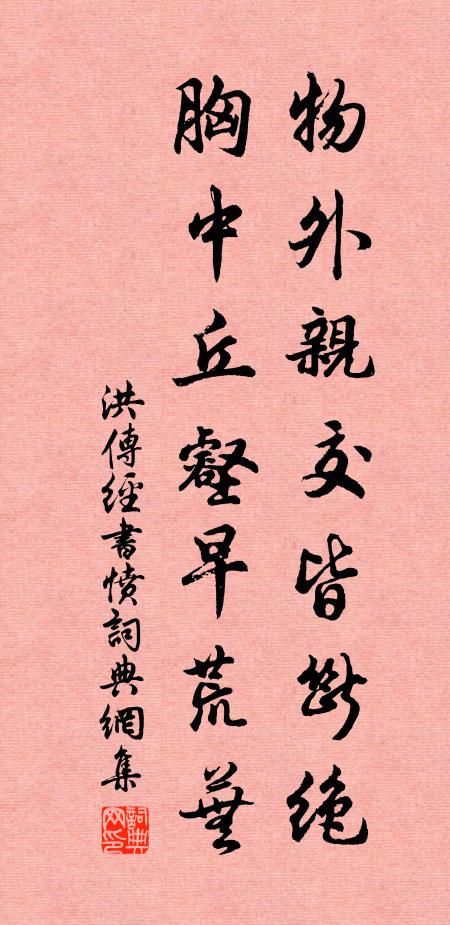 物外親交皆斷絶
胸中丘壑早荒蕪
洪傳經書憤詞典網集
詞典网印